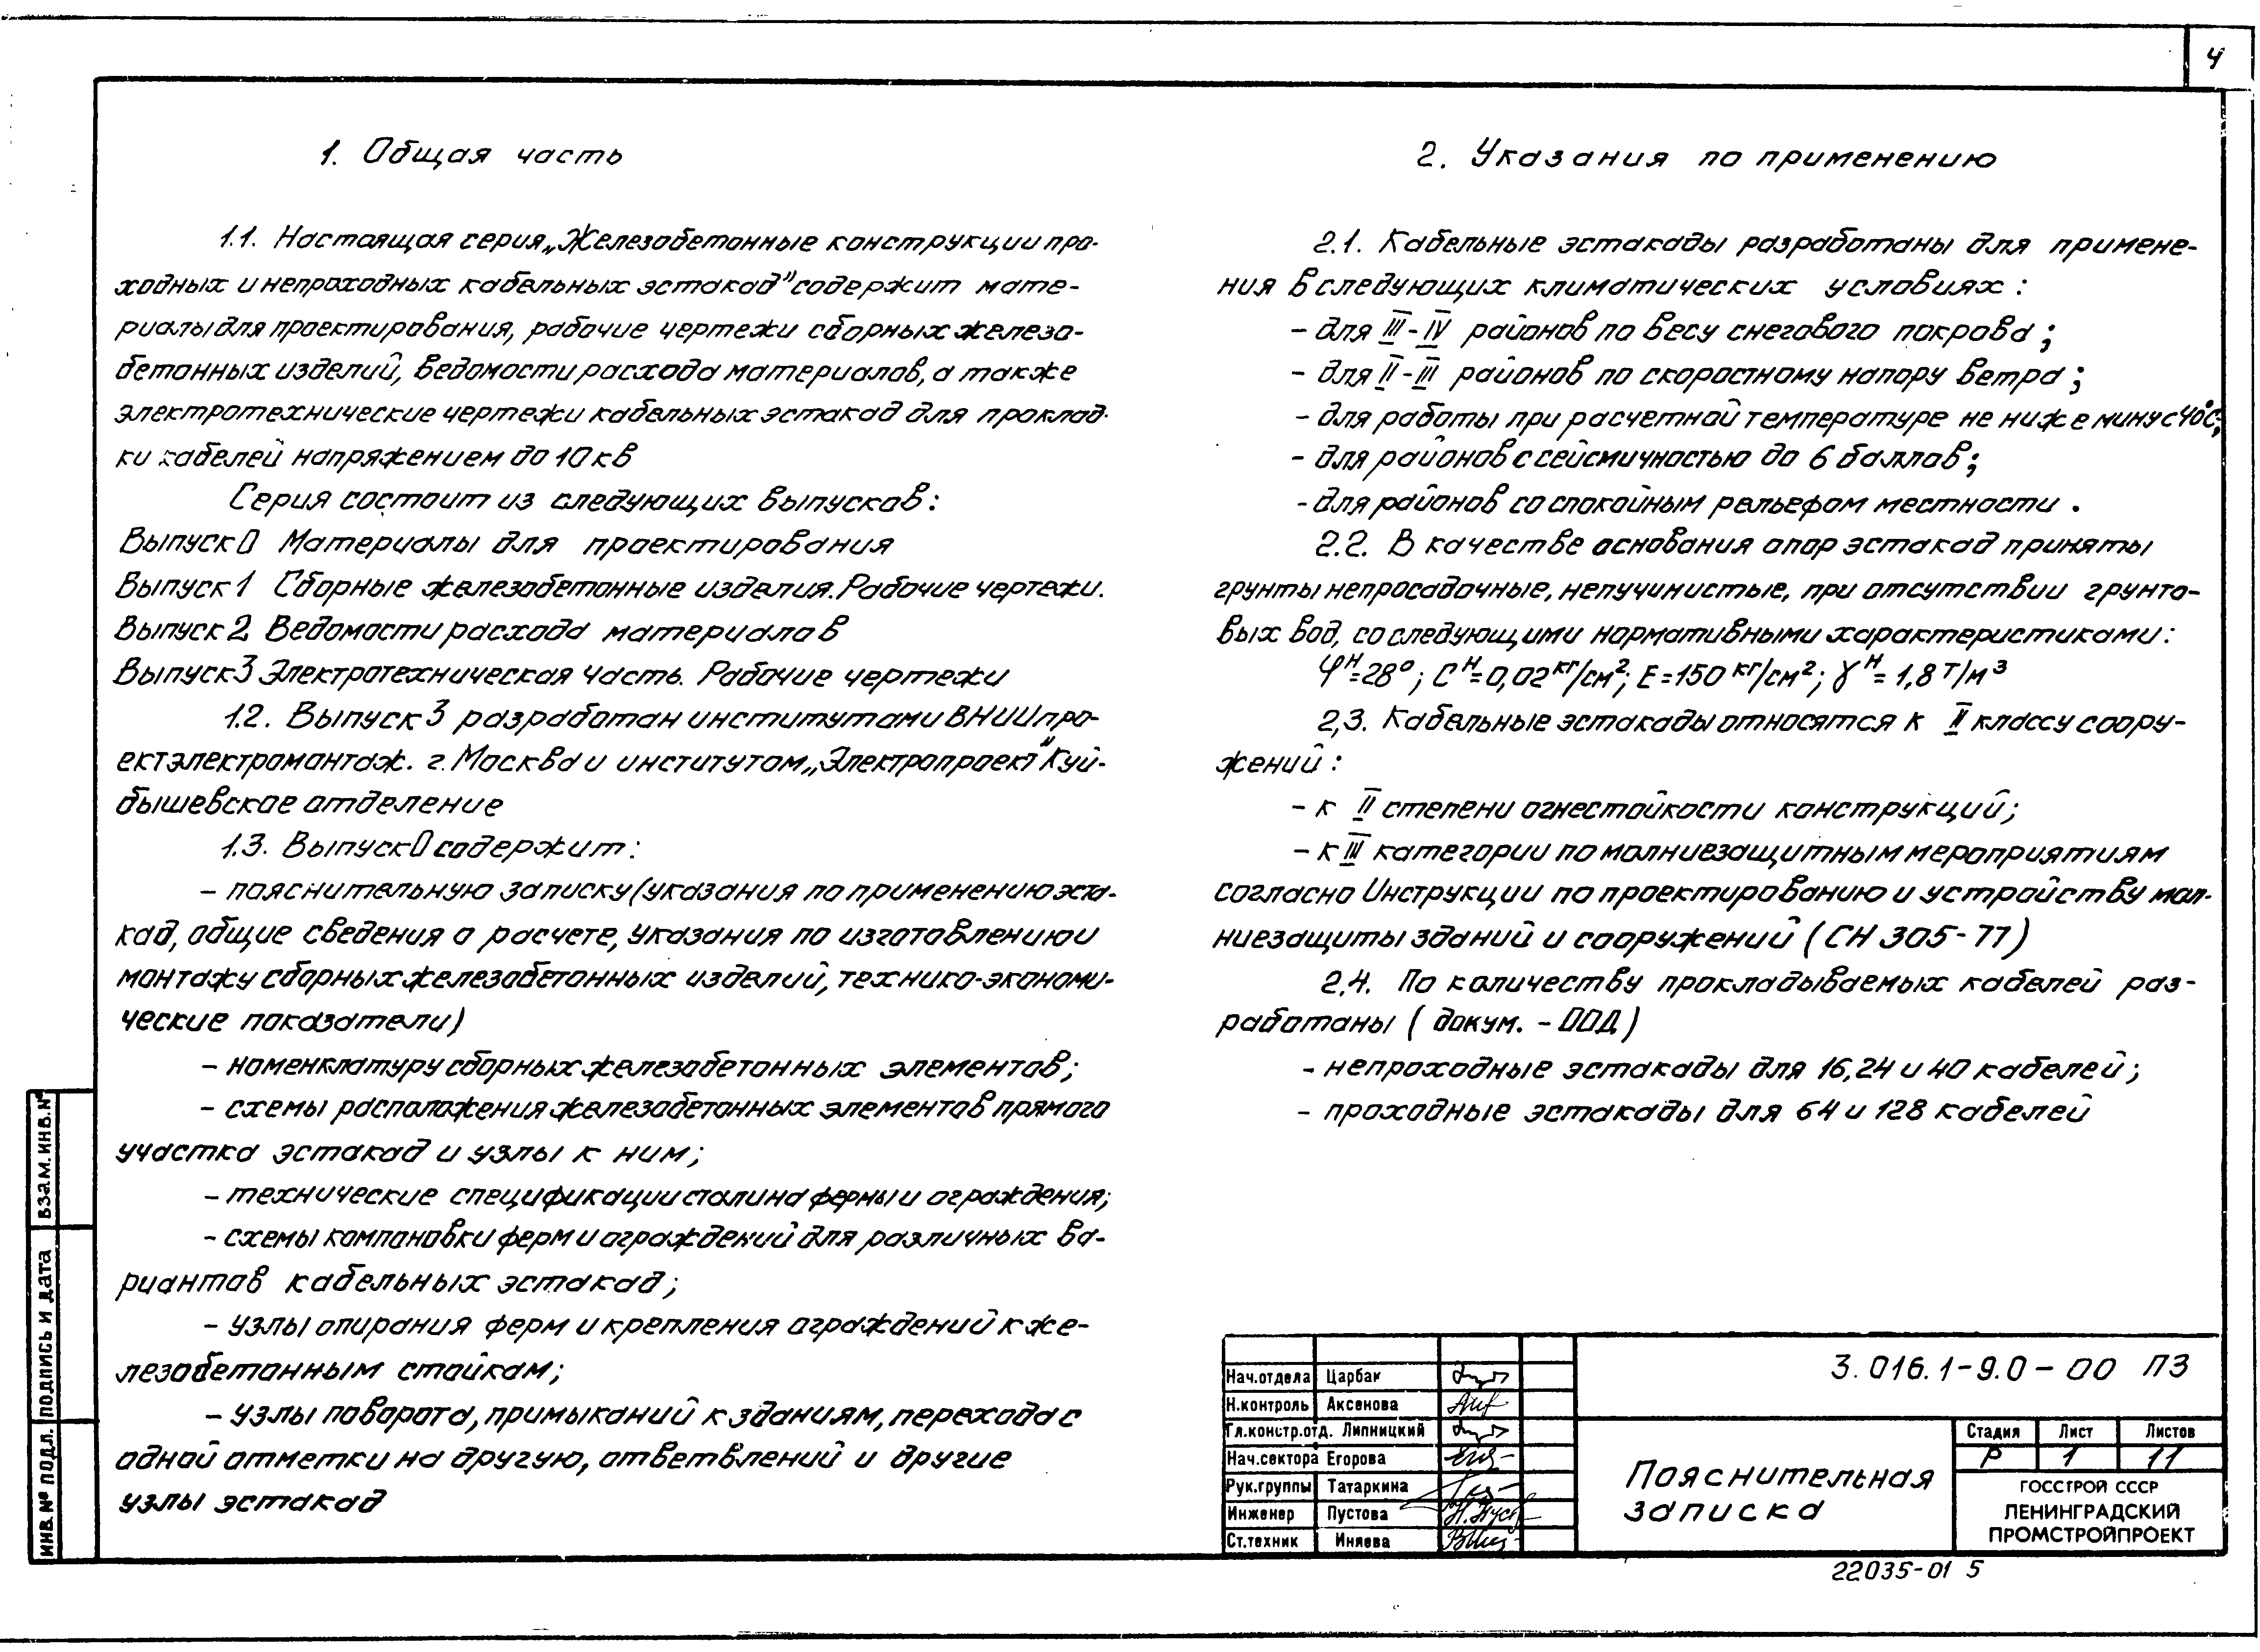 4
1. Общая часть
1.1. Настоящая серия „Железобетонные конструкции про-
ходных и непроходных кабельных эстакад" содержит мате-
риалы для проектирования, рабочие чертежи сборных железо-
бетонных изделий, ведомости расхода материалов, а также
электротехнические чертежи кабельных эстакад для проклад-
ки кабелей напряжением до 10 кв
Серия состоит из следующих выпусков:
Выпуск 0 Материалы для проектирования
Выпуск 1 Сборные железобетонные изделия. Рабочие чертежи.
Выпуск 2 Ведомости расхода материалов
Выпуск 3 Электротехническая часть. Рабочие чертежи
1.2. Выпуск 3 разработан институтами ВНИИпро-
ектэлектромонтаж. г. Москва и институтом „Электропроект" Куй-
бышевское отделение
1.3. Выпуск 0 содержит:
- пояснительную записку (указания по применению эста-
кад, общие сведения о расчете, указания по изготовлению и
монтажу сборных железобетонных изделий, технико-экономи-
ческие показатели)
- номенклатуру сборных железобетонных элементов;
- схемы расположения железобетонных элементов прямого
участка эстакад и узлы к ним;
- технические спецификации стали на фермы и ограждения;
- схемы компановки ферм и ограждений для различных ва-
риантов кабельных эстакад;
- узлы опирания ферм и крепления ограждений к же-
лезобетонным стойкам;
- узлы поворота, примыканий к зданиям, перехода с
одной отметки на другую, ответвлений и другие
узлы эстакад
2. Указания по применению
2.1. Кабельные эстакады разработаны для примене-
ния в следующих климатических условиях:
- для III-IV районов по весу снегового покрова;
- для II-III районов по скоростному напору ветра;
- для работы при расчетной температуре не ниже минус 40°С;
- для районов с сейсмичностью до 6 баллов;
- для районов со спокойным рельефом местности.
2.2. В качестве основания опор эстакад приняты
грунты непросадочные, непучинистые, при отсутствии грунто-
вых вод, со следующими нормативными характеристиками:
φᴴ=28°; Cᴴ=0,02 кг/см²; E=150 кг/см²; γᴴ=1,8 т/м³
2,3. Кабельные эстакады относятся к II классу соору-
жений:
- к II степени огнестойкости конструкций;
- к III категории по молниезащитным мероприятиям
согласно Инструкции по проектированию и устройству мол-
ниезащиты зданий и сооружений (СН 305-77)
2.4. По количеству прокладываемых кабелей раз-
работаны (докум. -00Д)
- непроходные эстакады для 16, 24 и 40 кабелей;
- проходные эстакады для 64 и 128 кабелей
ВЗАМ. ИНВ. №
ПОДПИСЬ И ДАТА
ИНВ. № ПОДЛ.
Нач.отдела Царбак
Н.контроль Аксенова
Гл.констр.отд. Липницкий
Нач.сектора Егорова
Рук.группы Татаркина
Инженер Пустова
Ст.техник Иняева
3.016.1-9.0-00 ПЗ
Пояснительная
записка
Стадия Лист Листов
Р 1 11
ГОССТРОЙ СССР
ЛЕНИНГРАДСКИЙ
ПРОМСТРОЙПРОЕКТ
22035-01 5